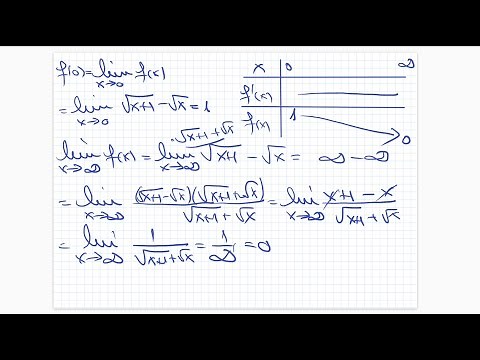 f(0) = lim x→0 f(x)
= lim x→0 √x+1 - √x = 1
x 0 ∞
f'(x)
f(x) 1 0
lim x→∞ f(x) = lim x→∞ √x+1 - √x = ∞ - ∞
·√x+1 + √x
= lim x→∞ (√x+1 - √x)(√x+1 + √x) / √x+1 + √x = lim x→∞ x+1 - x / √x+1 + √x
= lim x→∞ 1 / √x+1 + √x = 1/∞ = 0